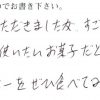 でお書き下さい。
ただきました女、すご
使いたいお菓子だと
ーをぜひ食べてみ